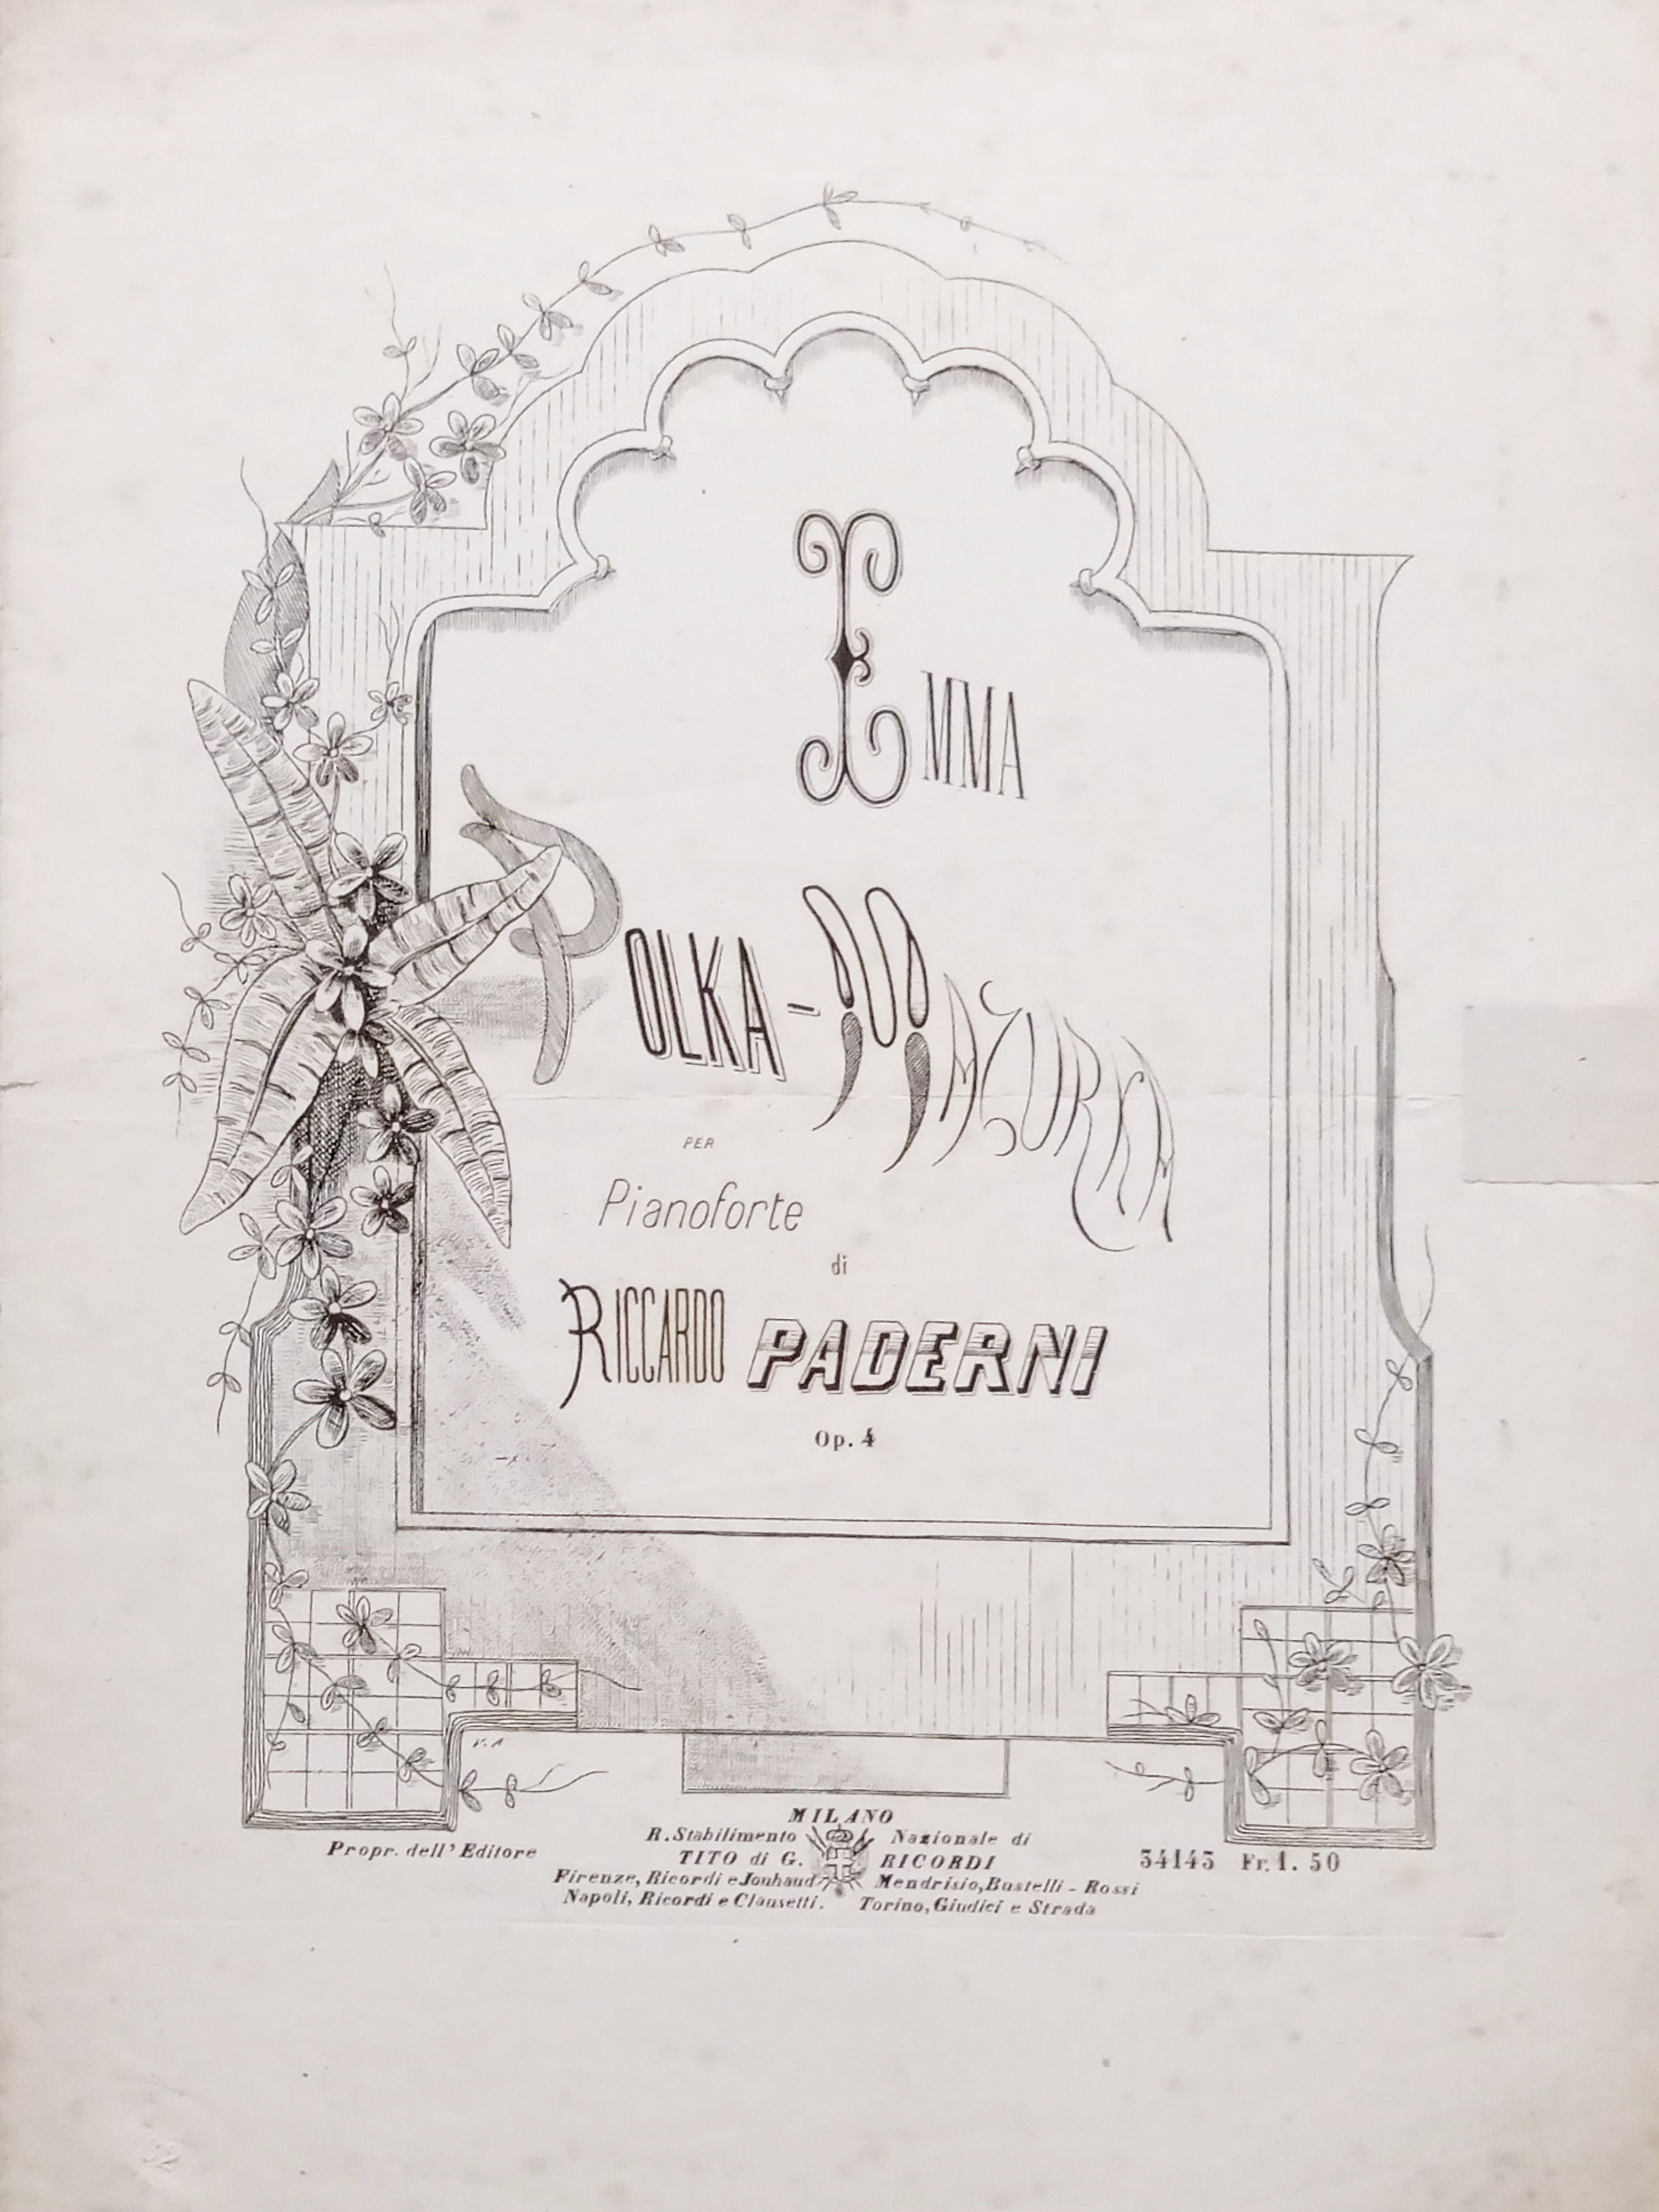 EMMA
POLKA-MAZURKA
PER
Pianoforte
di
RICCARDO PADERNI
Op. 4
V. A
MILANO
R. Stabilimento Nazionale di
TITO di G. RICORDI
Propr. dell' Editore
34143 Fr. 1. 50
Firenze, Ricordi e Jouhaud Mendrisio, Bustelli - Rossi
Napoli, Ricordi e Clausetti. Torino, Giudici e Strada
52